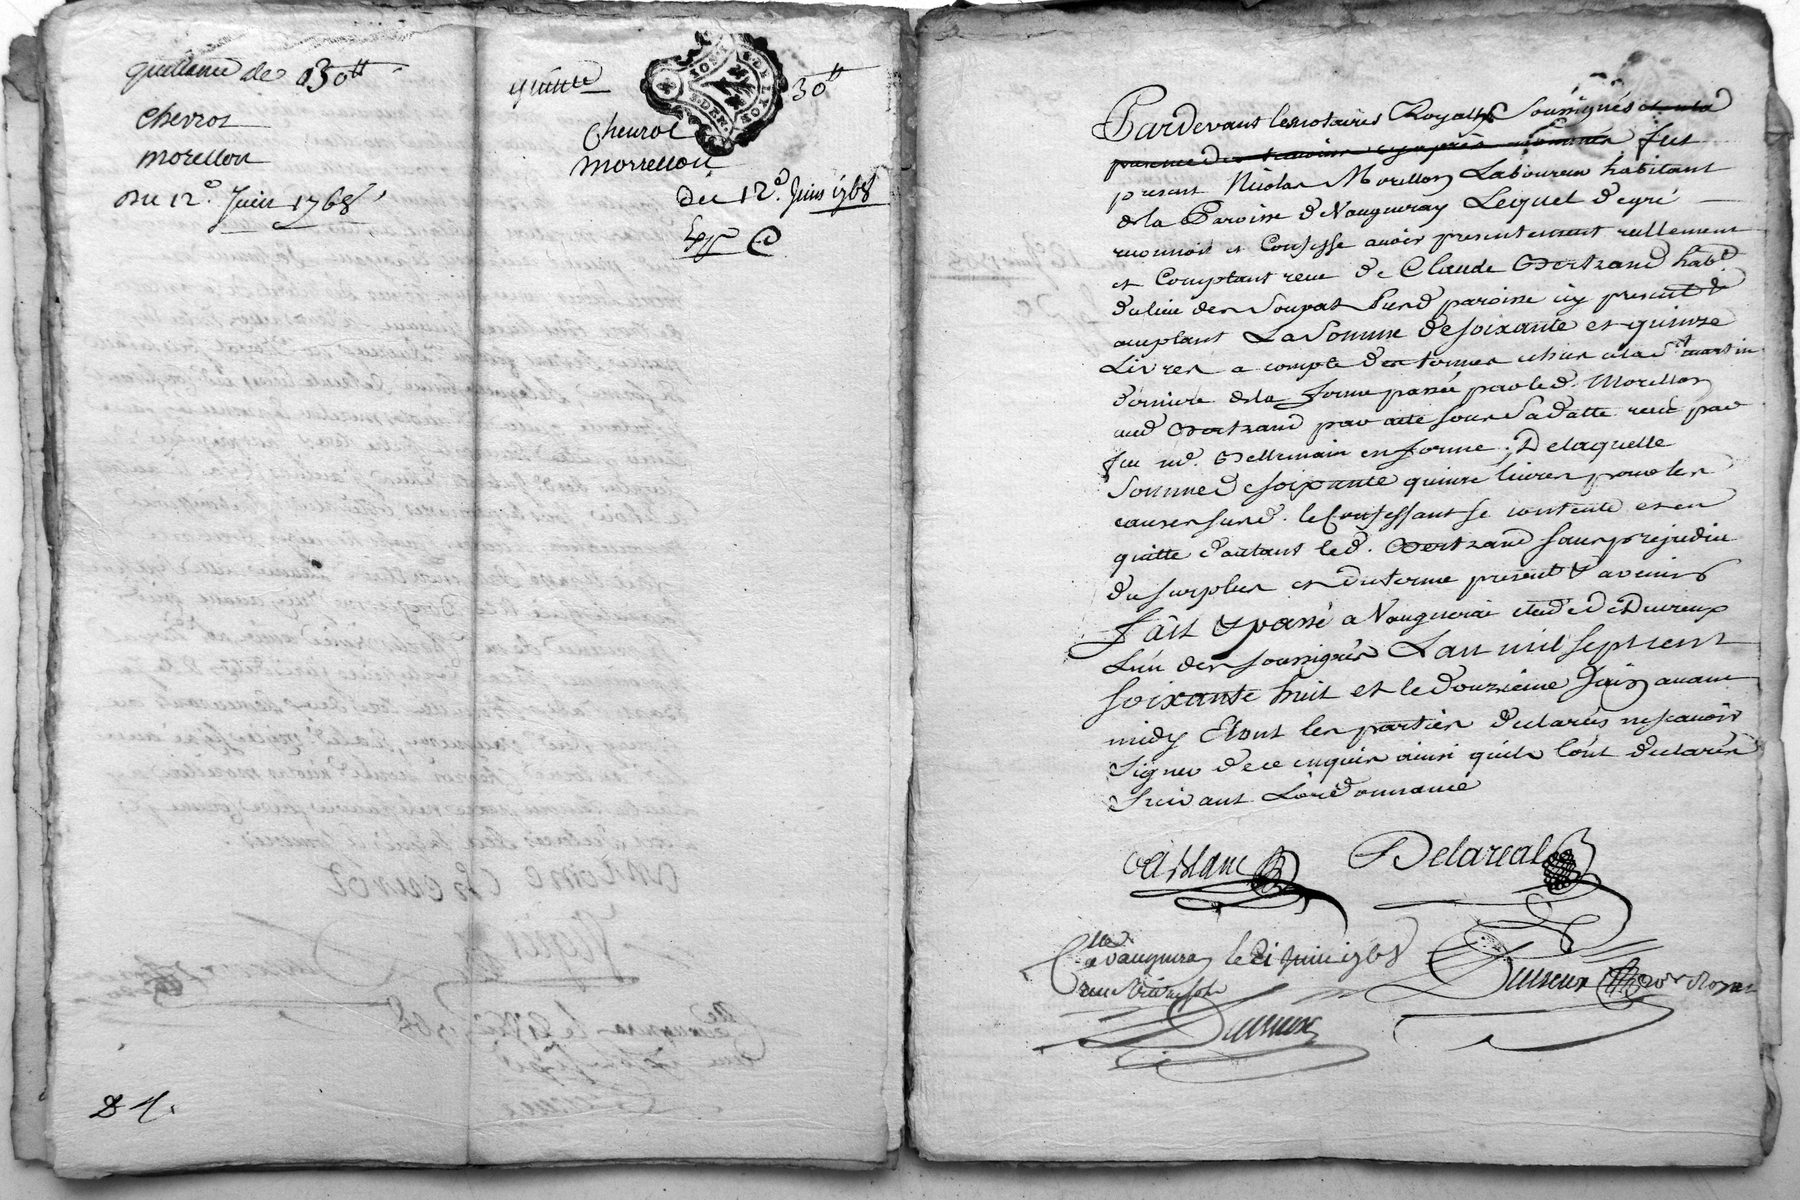 quittance de 130tt
Chevrot
Morellon
Du 12e. Juin 1768
quitte 30tt
GEN. DE LYON
Cheurot
Morrellon
Du 12e. Juin 1768
D 1.
Pardevant les notaires Royaux Soussignés et en la
presence des temoins cy après nommés fut
present Nicolas Morellon Laboureur habitant
de la Paroisse de Vaugneray Lequel de gré
reconnoit et Confesse avoir presentement reellement
et Comptant receu de Claude Bertrand habt
du lieu de paroisse icy present &
acceptant La Somme de soixante et quinze
Livres a compte des termes echus a la St martin
derniere de la ferme passée par led. Morellon
aud Bertrand par acte sous Sa datte receu par
feu me. en forme ; De laquelle
Somme de soixante quinze livres pour les
causes susd. le Confessant se contente et en
quitte d'autant led. Bertrand sans prejudice
du surplus et du terme present & avenir
fait & passé a Vaugneray etude de Dutreux
L'un des soussignés L'an mil sept cent
soixante huit et le douzieme Juin avant
midy Et ont les parties declarées ne scavoir
signer de ce enquis ainsi quils l'ont declarés
suivant L'ordonnance
Delareal
Clle a Vaugneray le 21 Juin 1768
Dutreux nore Royal
receu
Dutreux